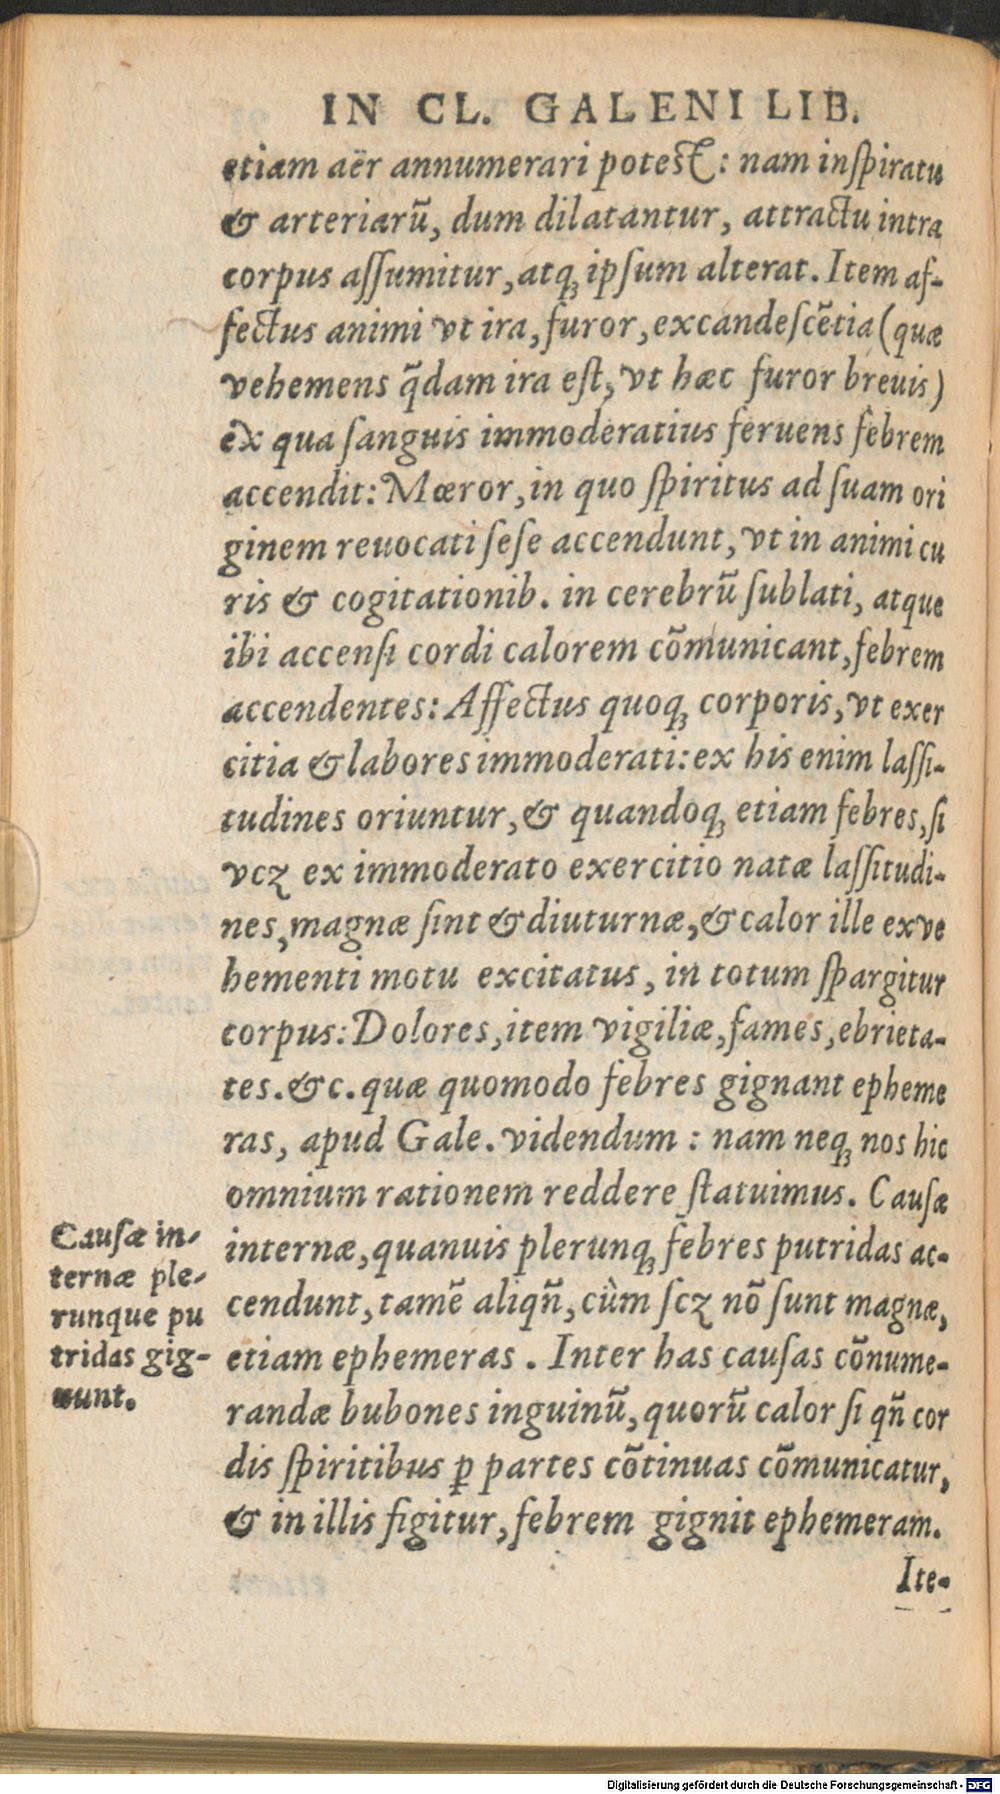 IN CL. GALENI LIB.
etiam aër annumerari potest: nam inſpiratu
& arteriarū, dum dilatantur, attractu intra
corpus aſſumitur, atq; ipſum alterat. Item af-
fectus animi vt ira, furor, excandeſcētia (quæ
vehemens q̄dam ira eſt, vt hæc furor breuis)
ex qua ſanguis immoderatius feruens febrem
accendit: Mœror, in quo ſpiritus ad ſuam ori
ginem reuocati ſeſe accendunt, vt in animi cu
ris & cogitationib. in cerebrū ſublati, atque
ibi accenſi cordi calorem cōmunicant, febrem
accendentes: Affectus quoq; corporis, vt exer
citia & labores immoderati: ex his enim laſſi-
tudines oriuntur, & quandoq; etiam febres, ſi
vcꝫ ex immoderato exercitio natæ laſſitudi-
nes, magnæ ſint & diuturnæ, & calor ille ex ve
hementi motu excitatus, in totum ſpargitur
corpus: Dolores, item vigiliæ, fames, ebrieta-
tes. &c. quæ quomodo febres gignant epheme
ras, apud Gale. videndum: nam neq; nos hic
omnium rationem reddere ſtatuimus. Cauſæ
internæ, quanuis plerunq; febres putridas ac-
cendunt, tamē aliqn̄, cùm ſcꝫ nō ſunt magnæ,
etiam ephemeras. Inter has cauſas cōnume-
randæ bubones inguinū, quorū calor ſi qn̄ cor
dis ſpiritibus ꝑ partes cōtinuas cōmunicatur,
& in illis figitur, febrem gignit ephemeram.
Ite-
Cauſæ in-
ternæ ple-
runque pu
tridas gig-
nunt.
Digitalisierung gefördert durch die Deutsche Forschungsgemeinschaft - DFG